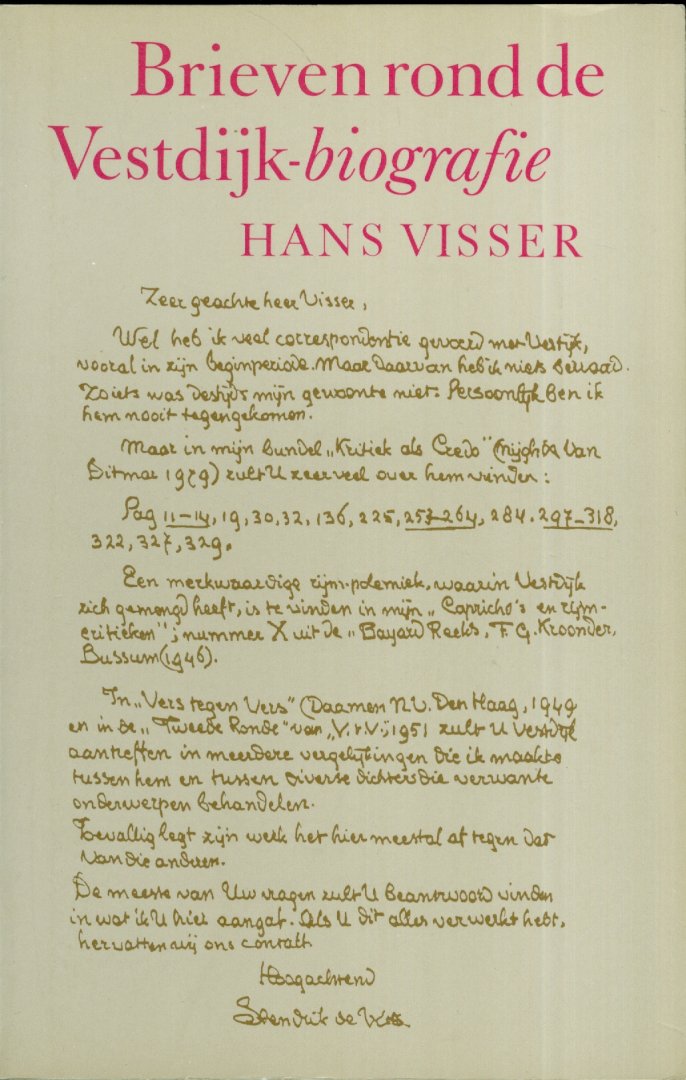 Brieven rond de
Vestdijk-biografie
HANS VISSER
Zeer geachte heer Visser,
Wel heb ik veel correspondentie gevoerd met Vestijk,
vooral in zijn beginperiode. Maar daarvan heb ik niets bewaard.
Zoiets was destijds mijn gewoonte niet. Persoonlijk ben ik
hem nooit tegengekomen.
Maar in mijn bundel „Kritiek als Credo" (Nijgh & Van
Ditmar 1979) zult U zeer veel over hem vinden:
Pag 11-14, 19, 30, 32, 136, 225, 257-264, 284. 297-318,
322, 327, 329.
Een merkwaardige rijm-polemiek, waarin Vestdijk
zich gemengd heeft, is te vinden in mijn „Capricho's en rijm-
critieken"; nummer X uit de „Bayard Reeks, F. G. Kroonder,
Bussum (1946).
In „Vers tegen Vers" (Daamen N.V. Den Haag, 1949
en in de „Tweede Ronde" van „V.t.V.", 1951 zult U Vestdijk
aantreffen in meerdere vergelijkingen die ik maakte
tussen hem en tussen diverse dichters die verwante
onderwerpen behandelen.
Toevallig legt zijn werk het hier meestal af tegen dat
van die anderen.
De meeste van Uw vragen zult U beantwoord vinden
in wat ik U hier aangaf. Als U dit alles verwerkt hebt,
hervatten wij ons contakt
Hoogachtend
Hendrik de Vries